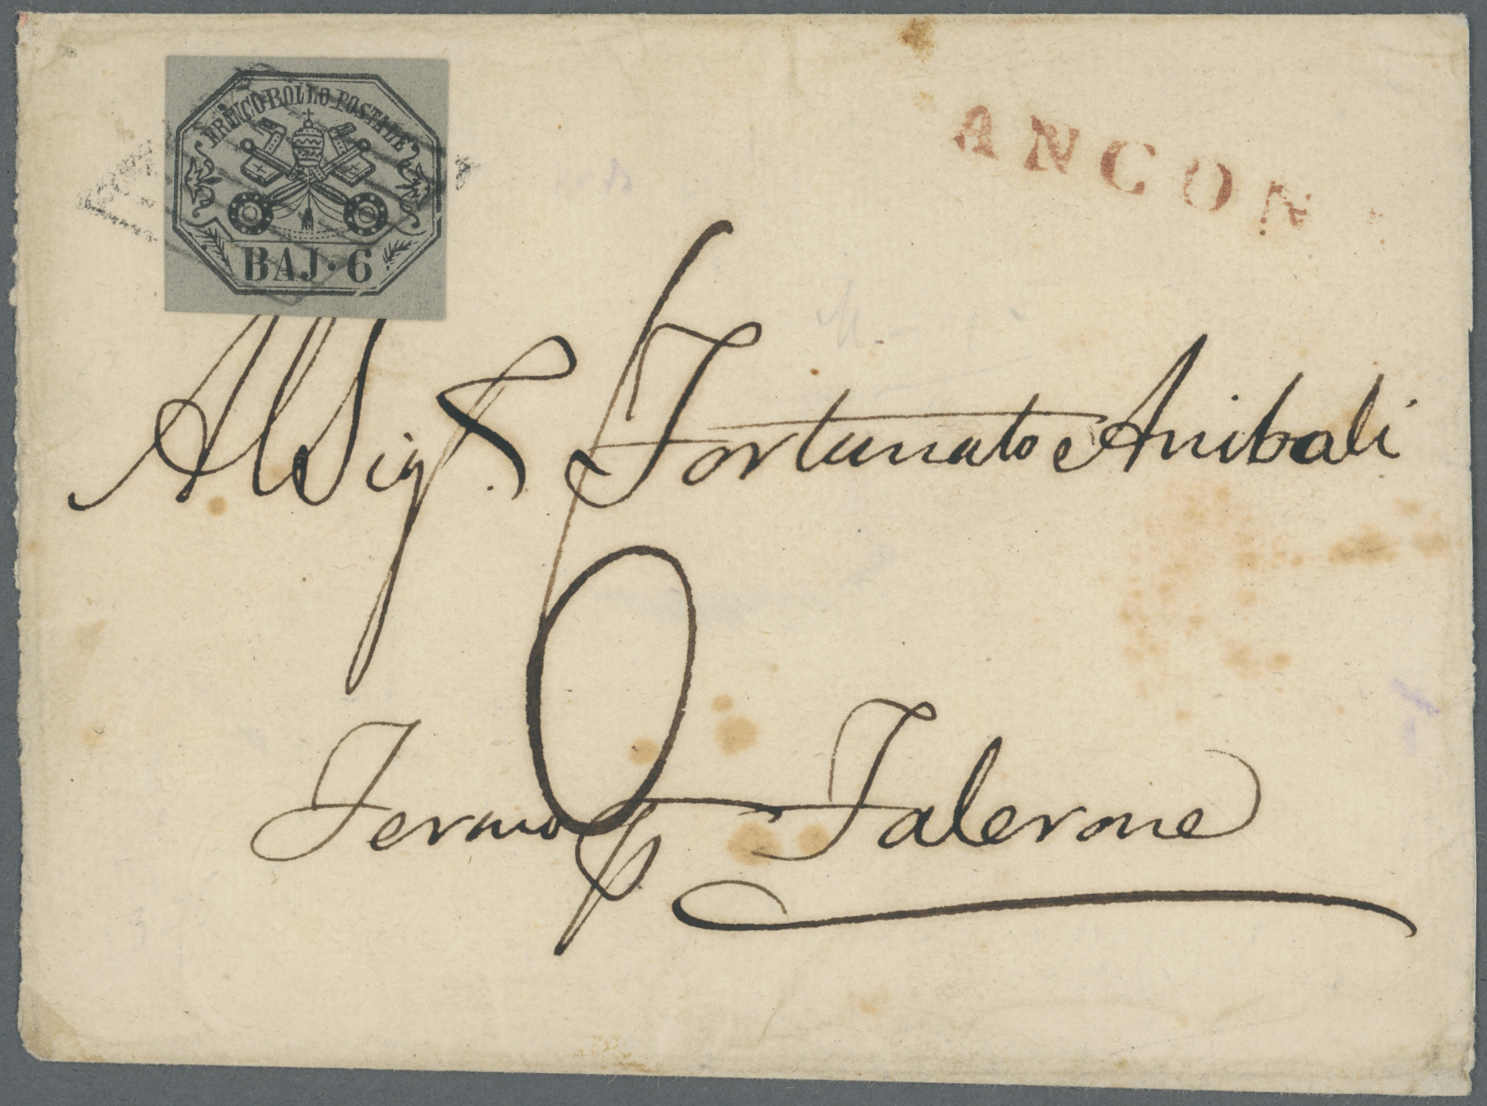 FRANCO BOLLO POSTALE
BAJ. 6
ANCON
Al Sigr. Fortunato Anibali
6
Fermo p Falerone